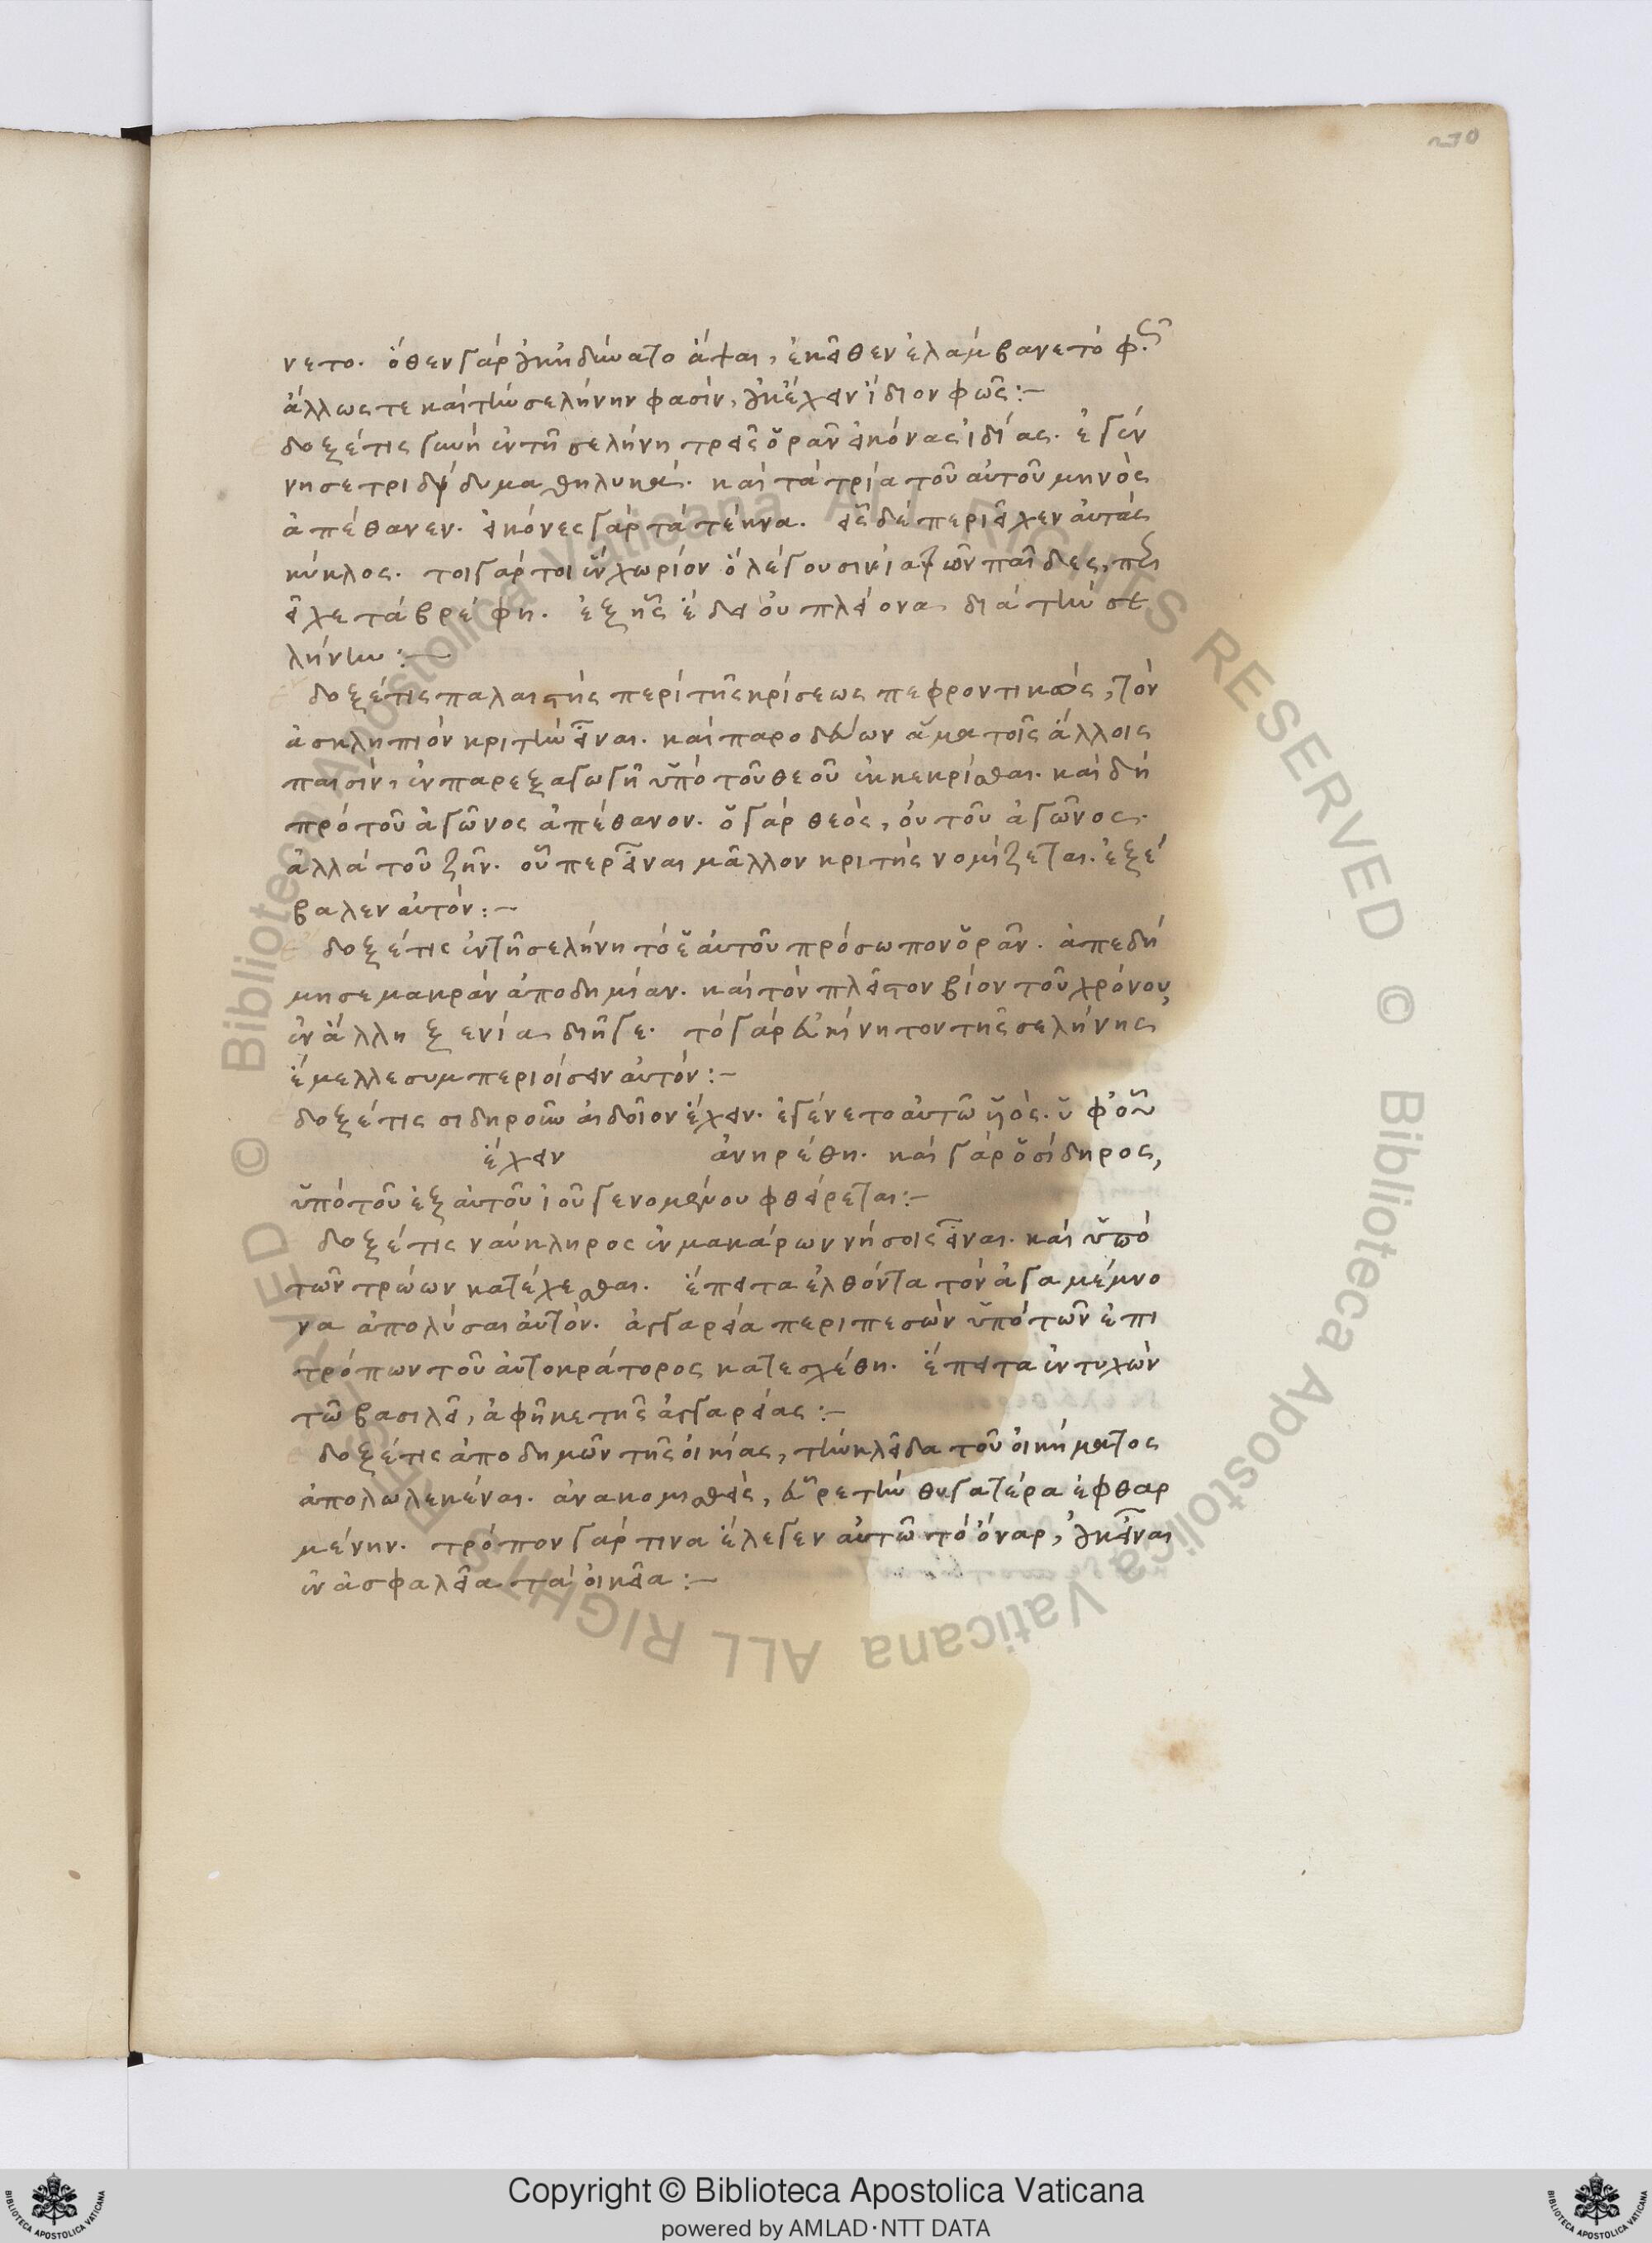 270
νετο. ὅθεν γὰρ οὐκ ἠδύνατο ἅψαι, ἐκεῖθεν ἐλάμβανε τὸ φῶς.
ἄλλως τε καὶ τὴν σελήνην φασὶν, οὐκ ἔχειν ἴδιον φῶς :–
δοξέ τις γυνὴ ἐν τῆ σελήνη τρεῖς ὁρᾶν εἰκόνας ἰδίας. ἐγέν
νησε τριδύδυμα θηλυκά. καὶ τὰ τρία τοῦ αὐτοῦ μηνὸς
ἀπέθανεν. εἰκόνες γὰρ τὰ τέκνα. εἷς δὲ περιεῖχεν αὐτὰς
κύκλος. τοιγάρτοι ἓν χωρίον ὃ λέγουσιν ἰατρῶν παῖδες, περι
εῖχε τὰ βρέφη. ἑξῆς ἔδει οὐ πλείονα διὰ τὴν σε
λήνην :–
δοξέ τις παλαιστὴς περὶ τῆς κρίσεως πεφροντικὼς, τὸν
ἀσκληπιὸν κριτὴν εἶναι. καὶ παροδεύων ἅμα τοῖς ἄλλοις
παισὶν, ἐν παρεξαγωγῆ ὑπὸ τοῦ θεοῦ ἐκκεκρίσθαι. καὶ δὴ
πρὸ τοῦ ἀγῶνος ἀπέθανον. ὁ γὰρ θεὸς, οὐ τοῦ ἀγῶνος.
ἀλλὰ τοῦ ζῆν. οὗπερ εἶναι μᾶλλον κριτὴς νομίζεται. ἐξέ
βαλεν αὐτόν :–
δοξέ τις ἐν τῆ σελήνη τὸ ἑαυτοῦ πρόσωπον ὁρᾶν. ἀπεδή
μησε μακρὰν ἀποδημίαν. καὶ τὸν πλεῖστον βίον τοῦ χρόνου,
ἐν ἄλλη ξενία διῆγε. τὸ γὰρ ἀεικίνητον τῆς σελήνης
ἔμελλε συμπεριοίσειν αὐτόν :–
δοξέ τις σιδηροῦν αἰδοῖον ἔχειν. ἐγένετο αὐτῶ υἱὸς. ὑφ' οὗ
ἔχειν ἀνηρέθη. καὶ γὰρ ὁ σίδηρος,
ὑπὸ τοῦ ἐξ αὐτοῦ ἰοῦ γενομένου φθείρεται :–
δοξέ τις ναύκληρος ἐν μακάρων νήσοις εἶναι. καὶ ὑπὸ
τῶν τρώων κατέχεσθαι. ἔπειτα ἐλθόντα τὸν ἀγαμέμνο
να ἀπολύσαι αὐτὸν. ἀγγαρεία περιπεσὼν ὑπὸ τῶν ἐπι
τρόπων τοῦ αὐτοκράτορος κατεσχέθη. ἔπειτα ἐντυχὼν
τῶ βασιλεῖ, ἀφῆκε τῆς ἀγγαρείας :–
δοξέ τις ἀποδημῶν τῆς οἰκίας, τὴν κλεῖδα τοῦ οἰκήματος
ἀπολωλεκέναι. ἀνακομισθεὶς, εὗρε τὴν θυγατέρα ἐφθαρ
μένην. τρόπον γάρ τινα ἔλεγεν αὐτῶ τὸ ὄναρ, οὐκ εἶναι
ἐν ἀσφαλεία τὰ οἰκεῖα :–
© Biblioteca Apostolica Vaticana ALL RIGHTS RESERVED © Biblioteca Apostolica Vaticana ALL RIGHTS RESERVED
Copyright © Biblioteca Apostolica Vaticana
powered by AMLAD·NTT DATA
BIBLIOTECA APOSTOLICA VATICANA
BIBLIOTECA APOSTOLICA VATICANA